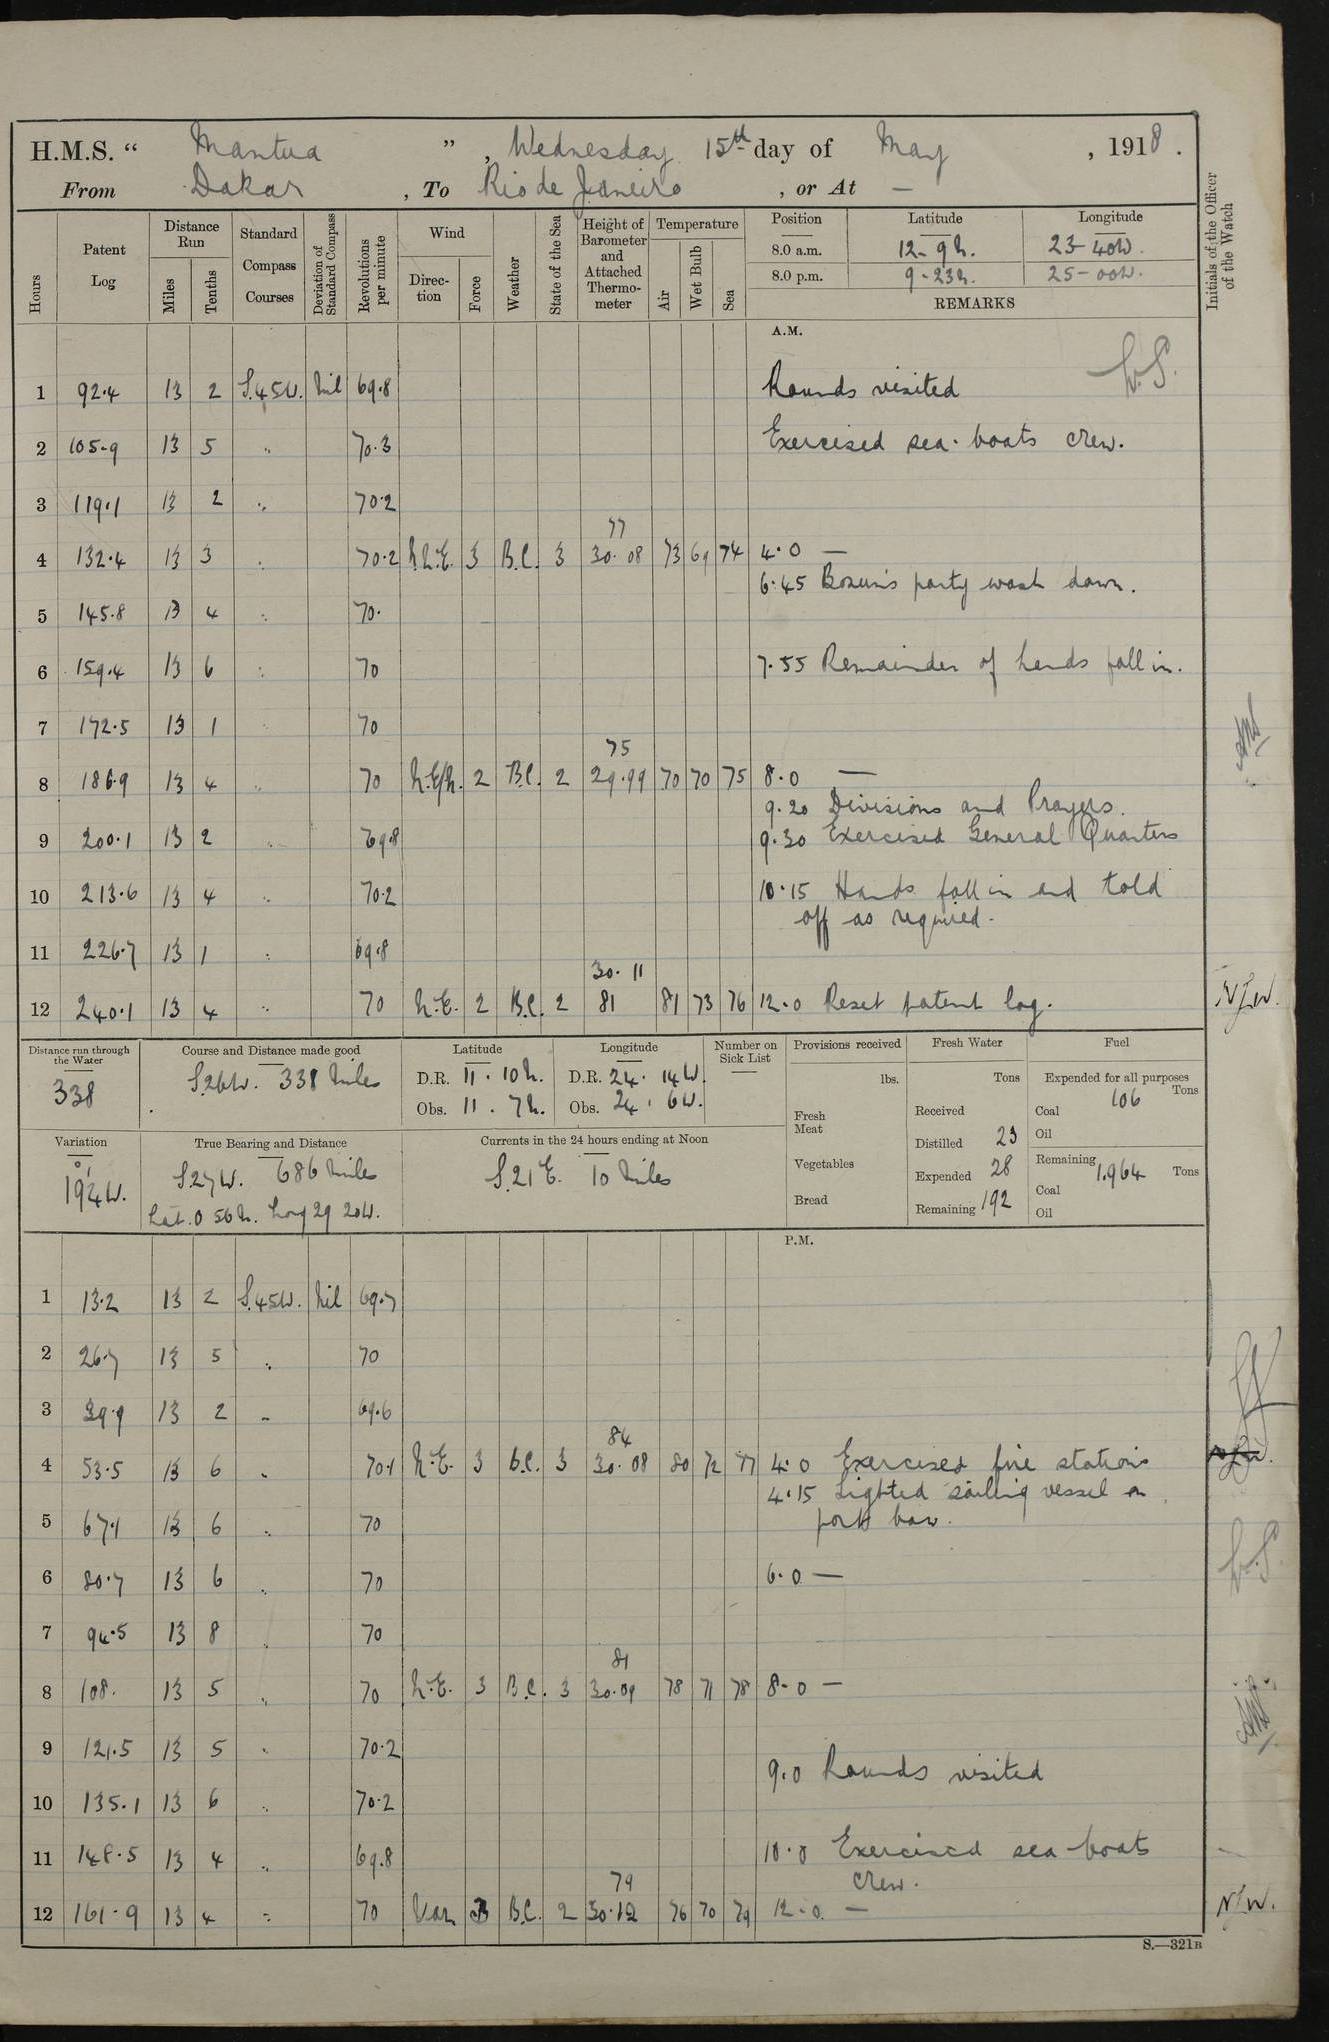 H.M.S. “ Mantua ” , Wednesday 15th day of May , 1918 .
From Dakar , To Rio de Janeiro , or At —
Hours Patent Log Distance Run Miles Tenths Standard Compass Courses Deviation of Standard Compass Revolutions per minute Wind Direction Force Weather State of the Sea Height of Barometer and Attached Thermometer Temperature Air Wet Bulb Sea Position Latitude Longitude Initials of the Officer of the Watch
8.0 a.m. 12-9 N. 23-40 W.
8.0 p.m. 9-23 N. 25-00 W.
REMARKS
A.M.
1 92.4 13 2 S.45W. Nil 69.8 Rounds visited
2 105.9 13 5 " 70.3 Exercised sea-boats crew.
3 119.1 13 2 " 70.2
77
4 132.4 13 3 " 70.2 N.N.E. 3 B.C. 3 30.08 73 69 74 4.0 —
6.45 Bosun's party wash down.
5 145.8 13 4 " 70.
6 159.4 13 6 " 70 7.55 Remainder of hands fall in.
7 172.5 13 1 " 70
75
8 186.9 13 4 " 70 N.E/N. 2 B.C. 2 29.99 70 70 75 8.0 —
9.20 Divisions and Prayers.
9 200.1 13 2 " 69.8 9.30 Exercised General Quarters
10 213.6 13 4 " 70.2 10.15 Hands fall in and told
off as required.
11 226.7 13 1 " 69.8
30.11
12 240.1 13 4 " 70 N.E. 2 B.C. 2 81 81 73 76 12.0 Reset patent log. N.J.W.
Distance run through the Water 338
Course and Distance made good S.26W. 338 Miles
Latitude D.R. 11.10 N. Obs. 11.7 N.
Longitude D.R. 24.14 W. Obs. 24.6 W.
Number on Sick List
Provisions received lbs. Fresh Meat Vegetables Bread
Fresh Water Tons Received Distilled 23 Expended 28 Remaining 192
Fuel Expended for all purposes Tons Coal 106 Oil Remaining Tons Coal 1,964 Oil
Variation 19 4 W.
True Bearing and Distance S.27W. 686 Miles
Lat. 0 56 N. Long 29 20 W.
Currents in the 24 hours ending at Noon S.21 E. 10 Miles
P.M.
1 13.2 13 2 S.45W. Nil 69.7
2 26.7 13 5 " 70
3 39.9 13 2 " 69.6
84
4 53.5 13 6 " 70.1 N.E. 3 b.c. 3 30.08 80 72 77 4.0 Exercised fire stations
4.15 Sighted sailing vessel on
5 67.1 13 6 " 70 port bow.
6 80.7 13 6 " 70 6.0 —
7 94.5 13 8 " 70
81
8 108. 13 5 " 70 N.E. 3 B.C. 3 30.09 78 71 78 8.0 —
9 121.5 13 5 " 70.2
9.0 Rounds visited
10 135.1 13 6 " 70.2
11 148.5 13 4 " 69.8 10.0 Exercised sea-boats
79 crew.
12 161.9 13 4 " 70 Var 3 B.C. 2 30.12 76 70 79 12.0. — N.J.W.
S.—321B